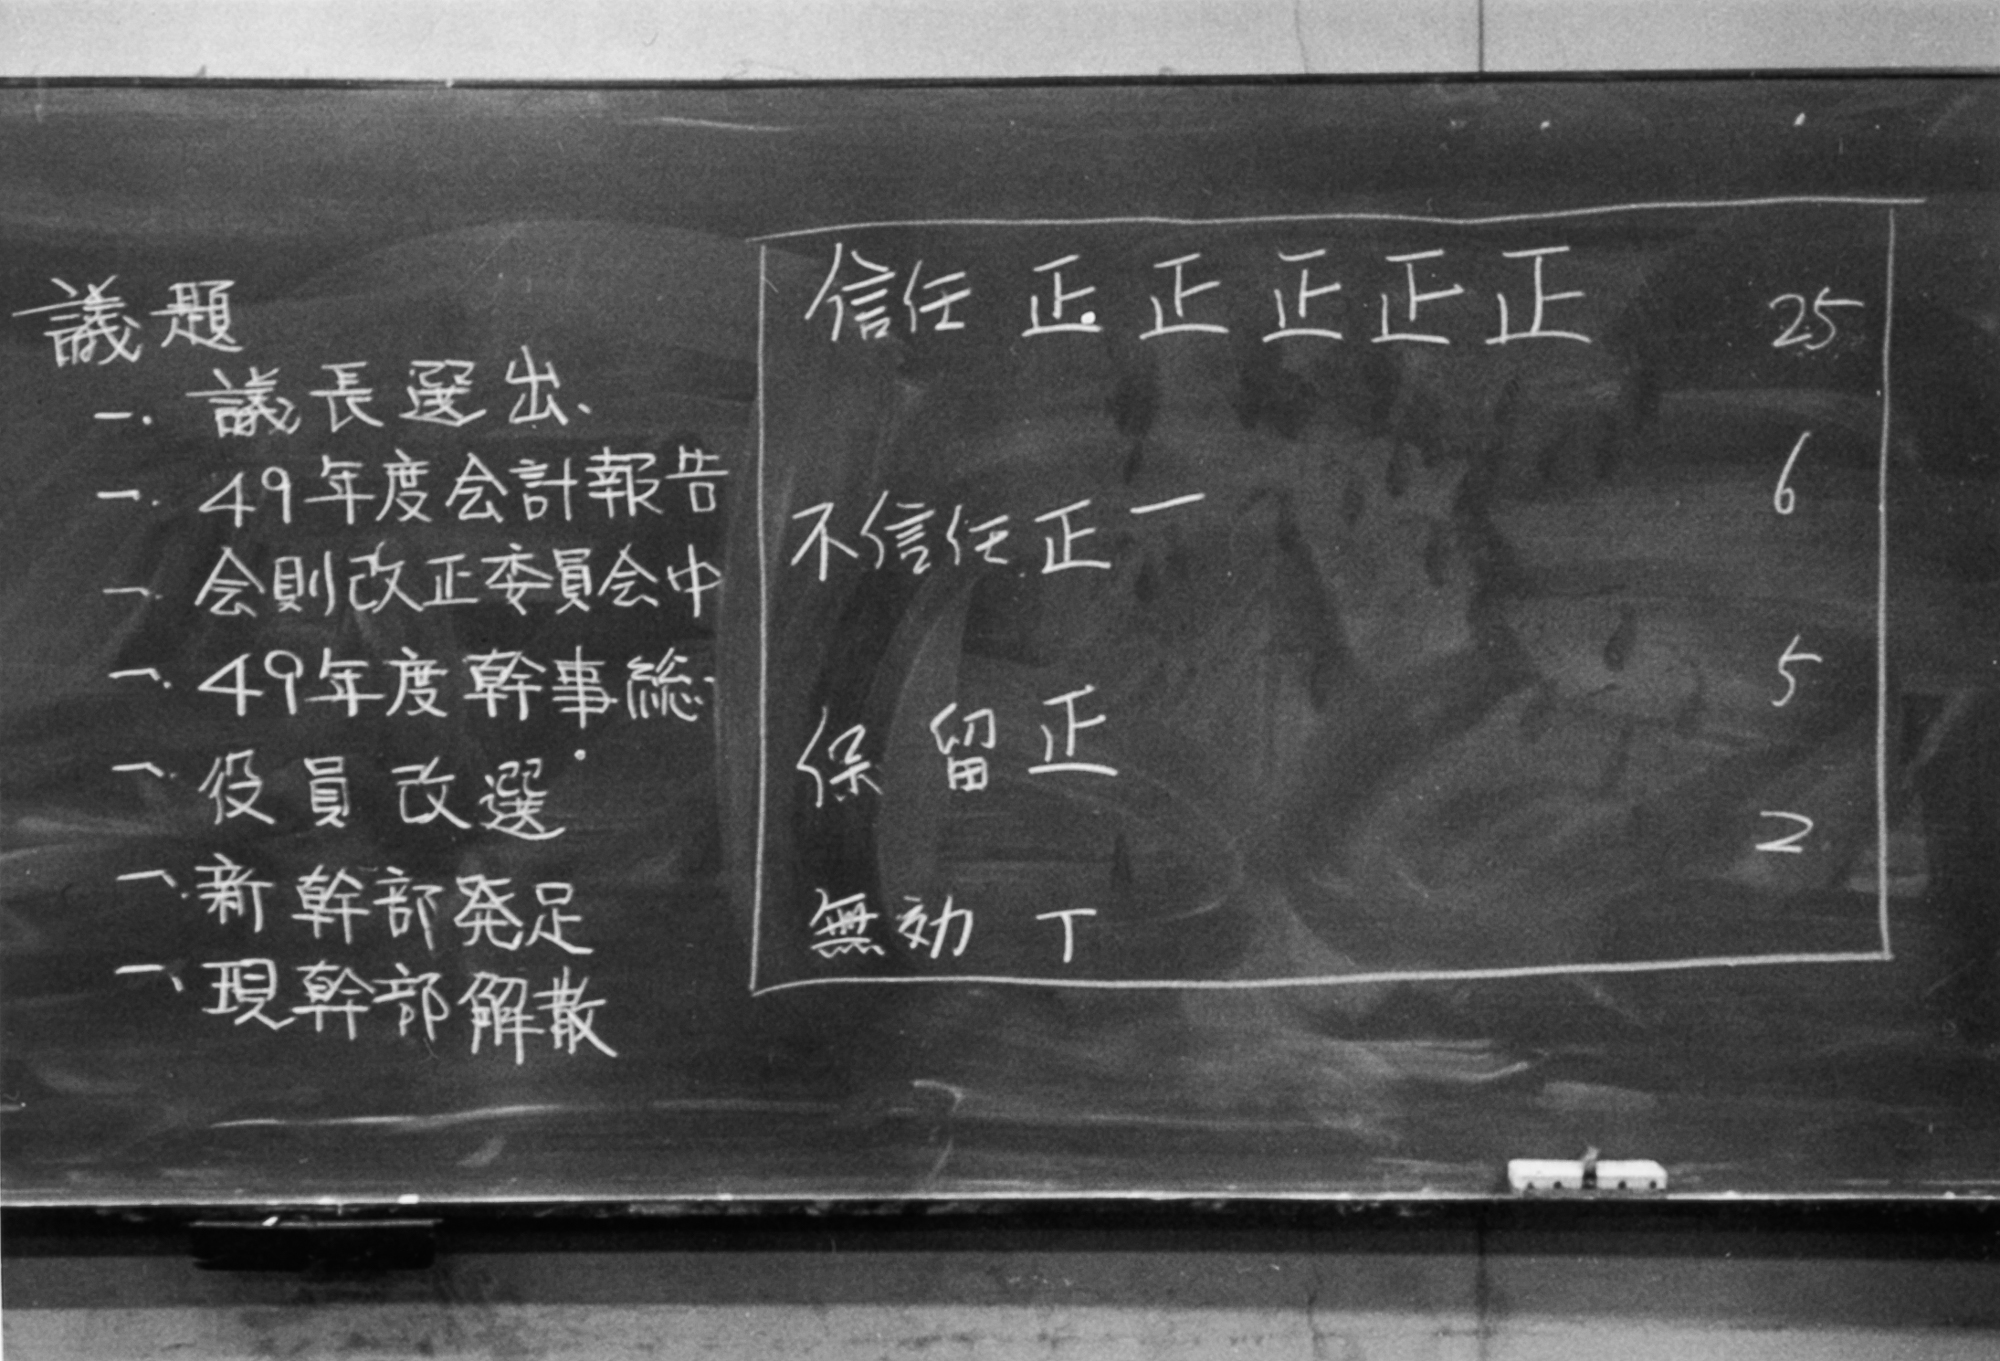 議題
一. 議長選出、
一. 49年度会計報告
一. 会則改正委員会中
一. 49年度幹事総
一. 役員改選
一. 新幹部発足
一、現幹部解散
信任 正 正 正 正 正 25
不信任 正 一 6
保留 正 5
無効 丅 2